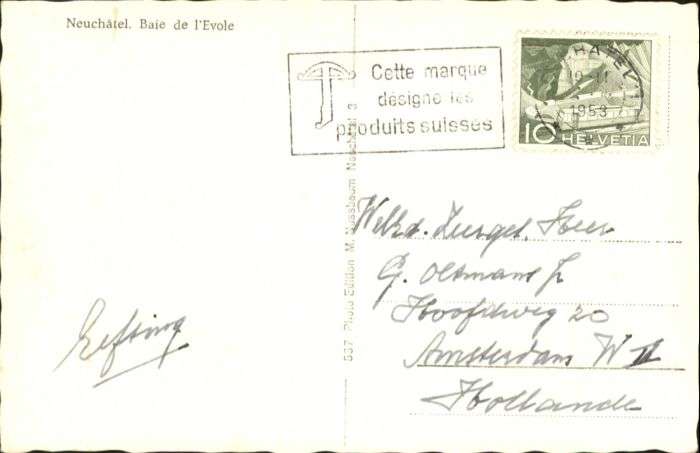 Neuchâtel. Baie de l'Evole
Cette marque
désigne les
produits suisses
1953
10 HELVETIA
537 Photo Edition M. Nussbaum Neuchâtel 3
Heer
G. Oltmans Jr
Hoofdweg 20
Amsterdam W II
Hollande